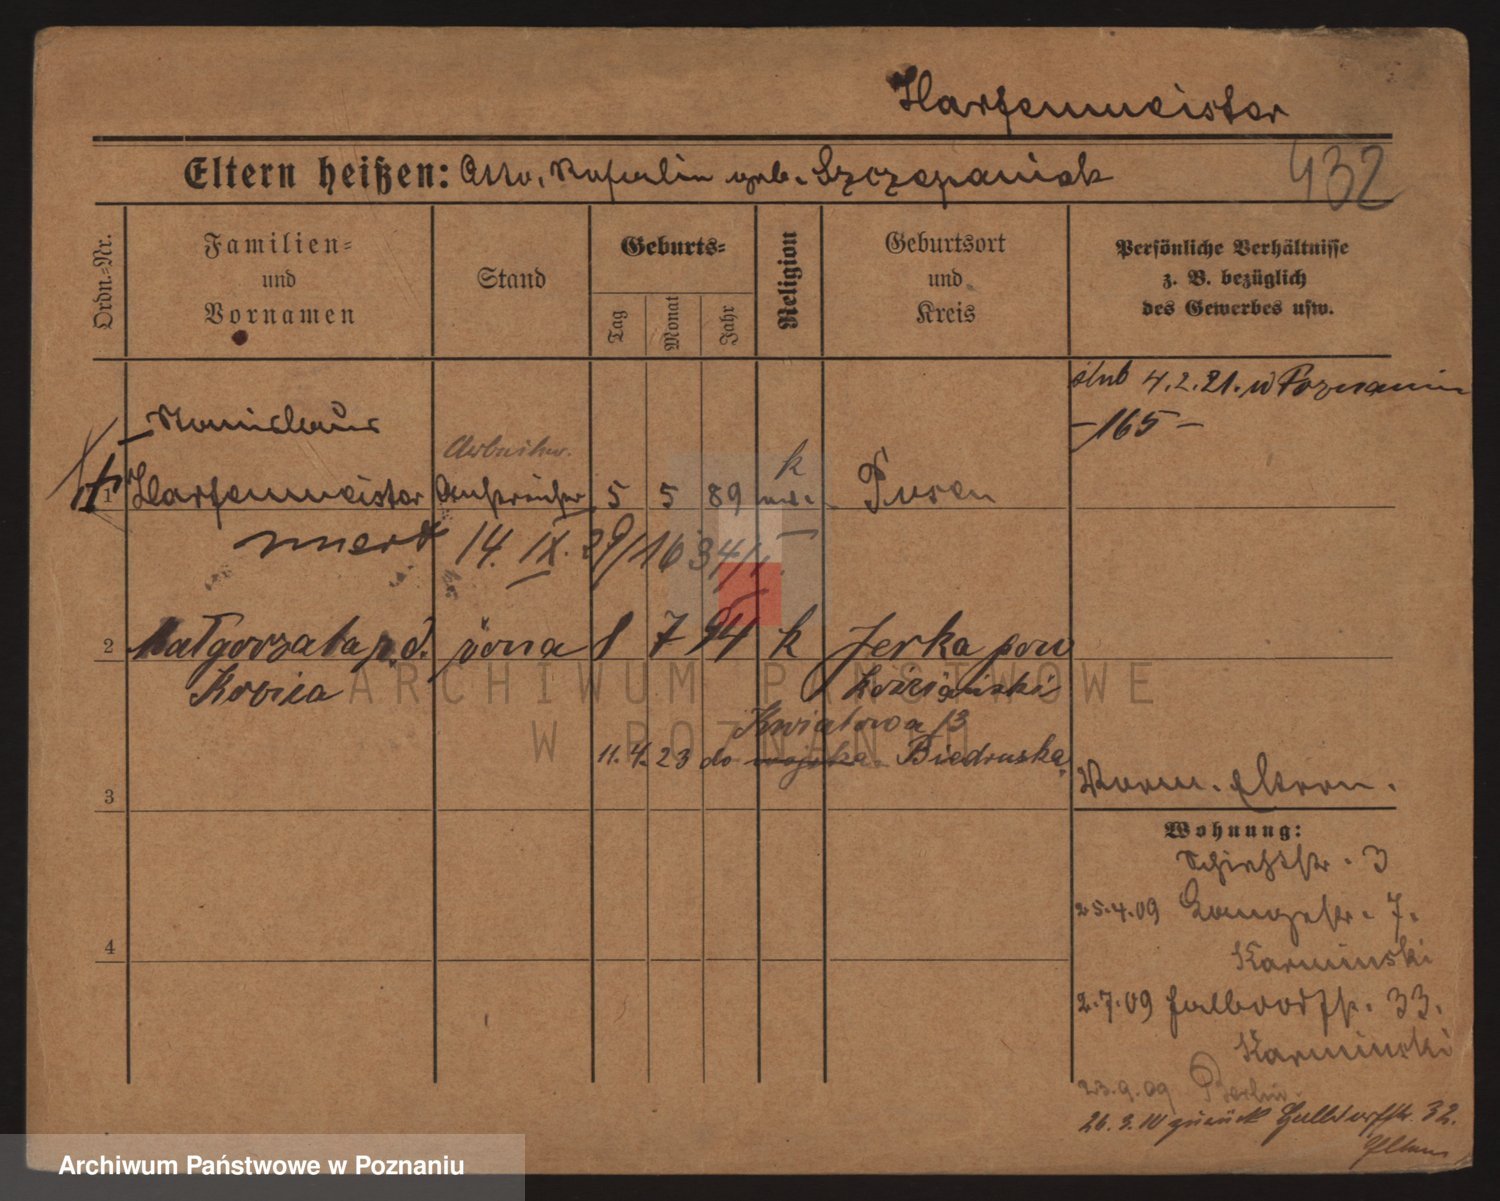 Harfenmeister
Eltern heißen: Otto, Rosalin geb. Szczepaniak
432
Ordn.=Nr.
Familien=
und
Vornamen
Stand
Geburts=
Tag
Monat
Jahr
Religion
Geburtsort
und
Kreis
Persönliche Verhältnisse
z. B. bezüglich
des Gewerbes usw.
ślub 4.2.21. w Poznaniu
-165-
Stanislaus
Arbeiter.
k
1 Harfenmeister Anstreicher 5 5 89 Posen
zmarł 14. IX.
2 Małgorzata p. d. żona 8 7 94 k Jerka pow
Kościański
Kwiatowa 13
11.4.23 do wojska Biedruska
3
Vorm. Eltern.
Wohnung:
3
25.4.09 Langestr. 7.
Karminski
4
2.7.09 Halbdorfstr. 33.
Karminski
23.9.09 Berlin.
26.3.10 zurück Halbdorfstr. 32.
Eltern
ARCHIWUM PAŃSTWOWE
W POZNANIU
Archiwum Państwowe w Poznaniu